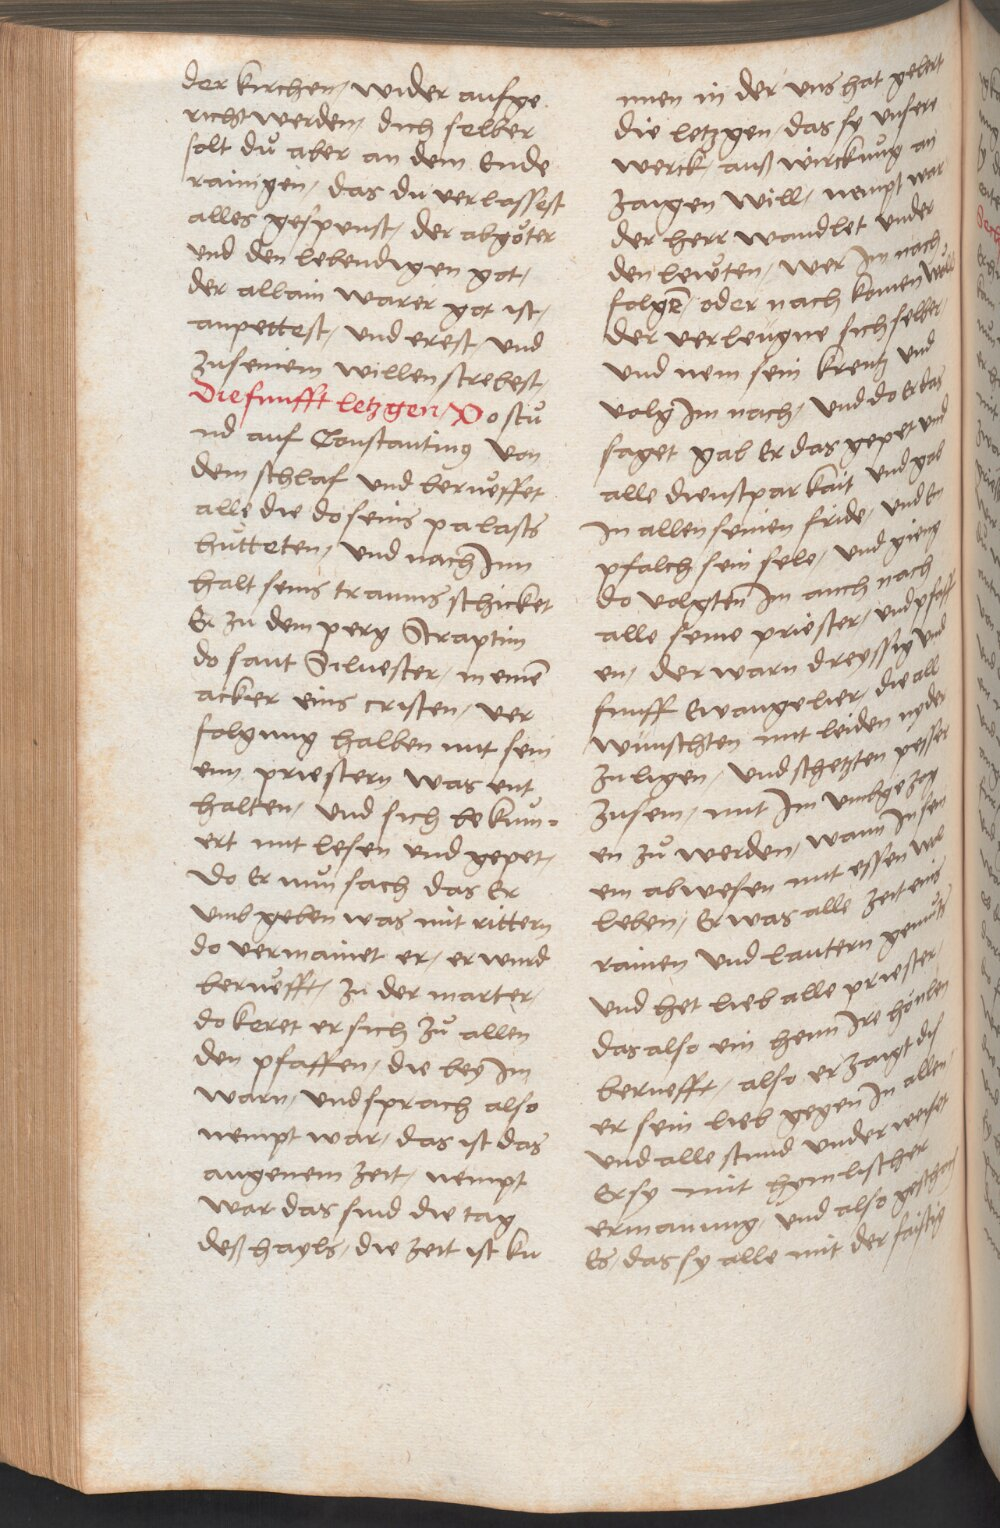 der kirchen / wider aufge
richt werden / dich selber
solt dů aber an dem Ende
rainigen / das du verlassest
alles gespenst / der abgöter
und den lebendigen got /
der allain warer got ist /
anpettest / und erest / und
zu seinem willen strebest /
Die funfft letzgen / Do stů
nd auf Constantinus von
dem schlaf und berůeffet
alle die do seins palasts
hütteten / und nach Inn
halt seins traums schicket
Er zu dem perg Straptim
do sant Siluester / in einē
acker eins cristen / ver
folgung halben mit sein
enn priestern was ent
halten / und sich bekům=
ert mit lesen und gepet /
Do Er nůn sach das Er
umb geben was mit rittern
do vermainet er / er wurd
berůefft / zu der marter /
do keret er sich zů allen
den pfaffen / die bey Im
warn / und sprach also
nempt war / das ist das
angenem zeit / nempt
war das sind die tag
deß hayls / die zeit ist ku
men in der uns hat gelert
die letzgen / das sy unsere
werck / auß wirckung an
zaigen will / nempt war
der herr wandlet under
den lewten / wer Im nach
folgē / oder nach komen well
der verleugne sich selber /
und nem sein kreutz und
volg Im nach / und do Er das
saget gab Er das gepet und
alle dienstparkait und gab
In allen seinen fride / und En
pfalch sein sele / und gieng
do volgten Im auch nach
alle seine priester / und pfaff
en / der warn dreyssig und
funff Ewangelier / die all
wünschten mit leiden nyder
zu ligen / und schetzten pesser
zusein / mit Im umbgezog
en zů werden / wann In sein
em abwesen mit essen wol
leben / Er was alle zeit eins
rainen und lautern gemüts
und het lieb alle priester /
das also ein henn Ire hönlen
berüefft / also erzaigt dis
er sein lieb gegen In allen /
und alle stund underweiset
Er sy mit hymlischer
ermanung / und also geschach
Es / das sy alle mit der faistig